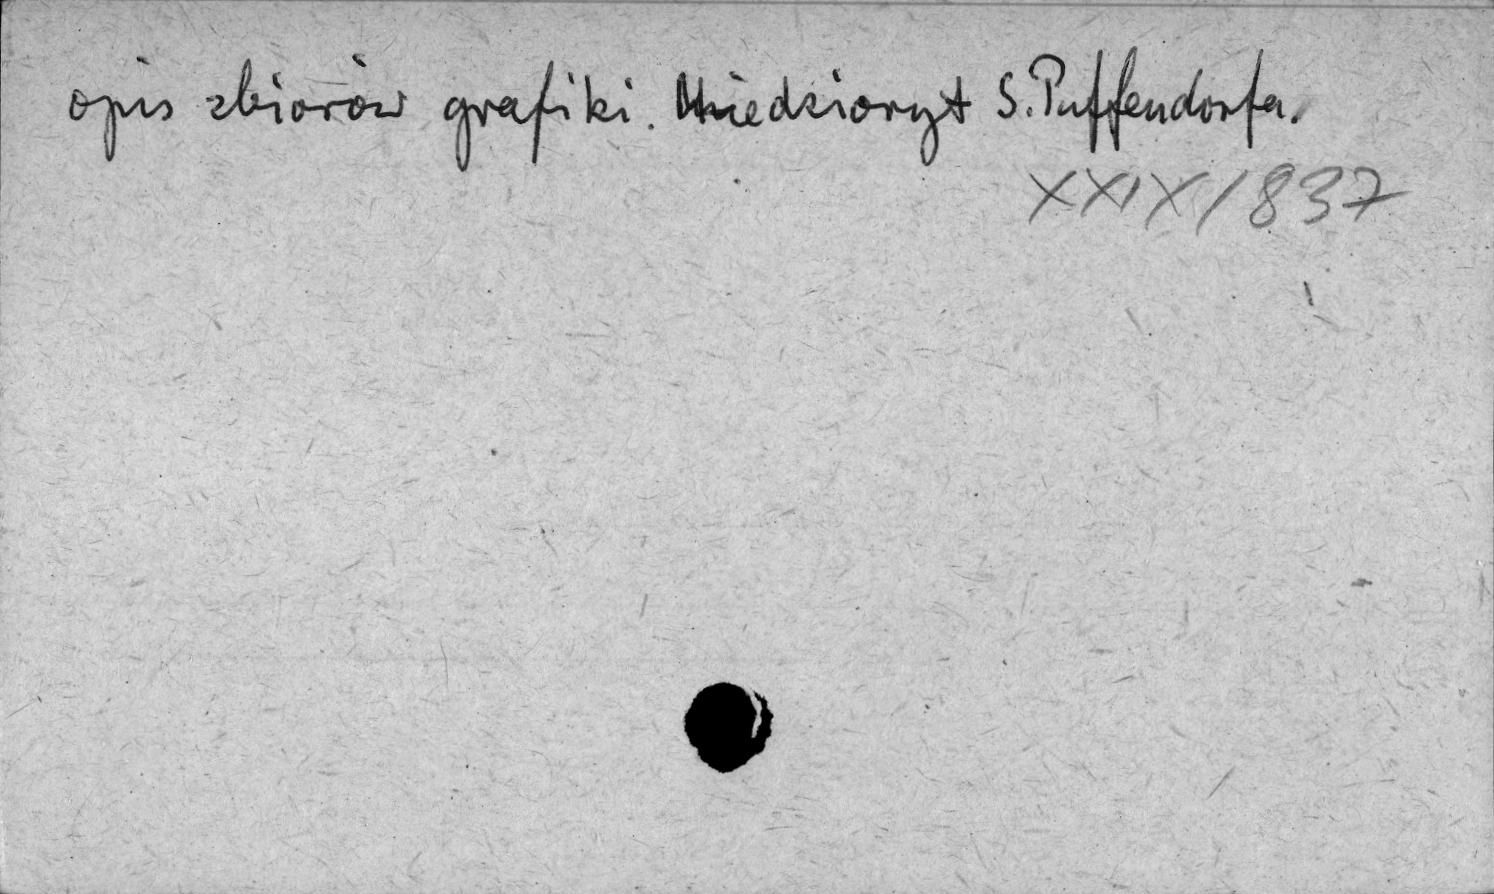 opis zbiorów grafiki. Miedzioryt S. Puffendorfa.
XXIX/837